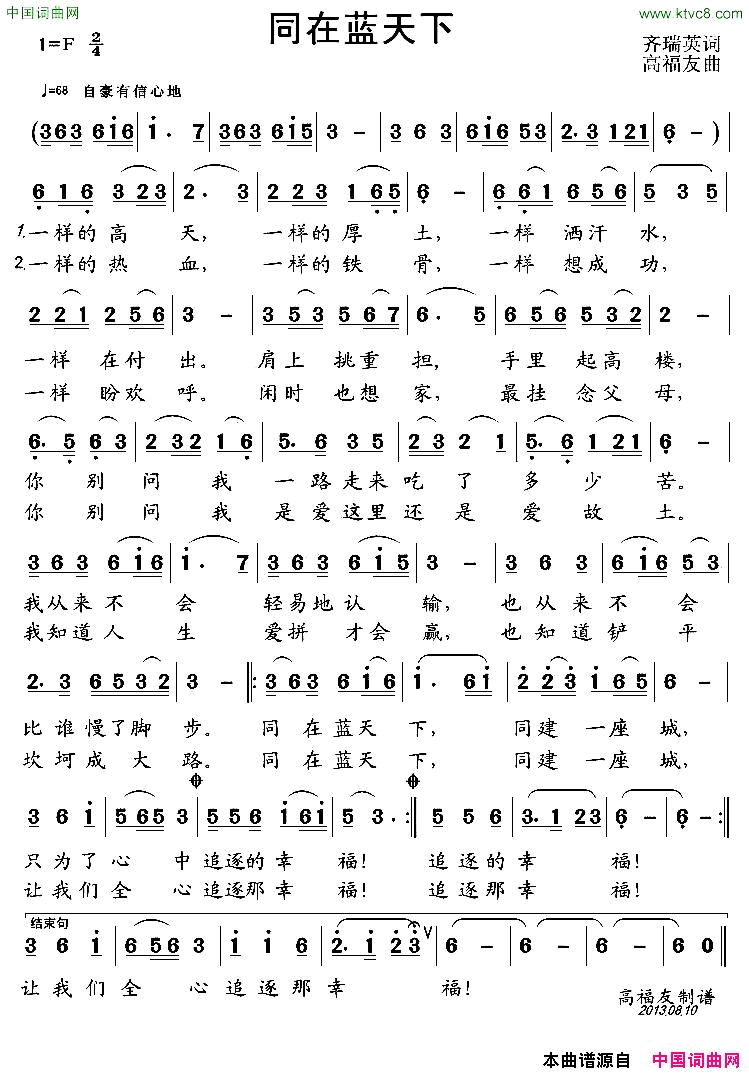 中国词曲网
www.ktvc8.com
同在蓝天下
1=F 2/4
齐瑞英词
高福友曲
♩=68 自豪有信心地
(363 6i6 | i. 7 | 363 6i5 | 3 - | 3 6 3 | 6i6 53 | 2.3 121 | 6 - )
6 1 6 3 23 | 2. 3 | 2 2 3 1 65 | 6 - | 6 6 1 6 5 6 | 5 3 5
1.一样的高天，一样的厚土，一样洒汗水，
2.一样的热血，一样的铁骨，一样想成功，
2 2 1 2 5 6 | 3 - | 3 5 3 5 67 | 6. 5 | 6 5 6 5 32 | 2 -
一样在付出。肩上挑重担，手里起高楼，
一样盼欢呼。闲时也想家，最挂念父母，
6. 5 6 3 | 2 32 1 6 | 5. 6 35 | 2 3 2 1 | 5. 6 1 21 | 6 -
你别问我一路走来吃了多少苦。
你别问我是爱这里还是爱故土。
3 6 3 6 i6 | i. 7 | 3 6 3 6 i5 | 3 - | 3 6 3 | 6 i6 5 3
我从来不会轻易地认输，也从来不会
我知道人生爱拼才会赢，也知道铲平
2. 3 6 5 3 2 | 3 - |: 3 6 3 6 i6 | i. 6i | 2 2 3 i 65 | 3 -
比谁慢了脚步。同在蓝天下，同建一座城，
坎坷成大路。同在蓝天下，同建一座城，
3 6 i | 5 65 3 | 5 5 6 i 6i | 5 3. :| 5 5 6 | 3. 1 23 | 6 - | 6 - :|
只为了心中追逐的幸福！追逐的幸福！
让我们全心追逐那幸福！追逐那幸福！
结束句
3 6 i | 6 56 3 | i i 6 | 2. i 2 3 | 6 - | 6 - | 6 - | 6 0
让我们全心追逐那幸福！
高福友制谱
2013.08.10
本曲谱源自 中国词曲网